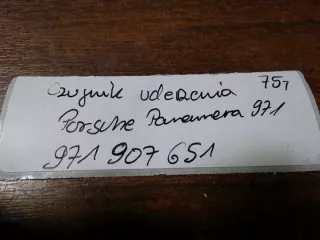 Czujnik uderzenia 757
Porsche Panamera 971
971 907 651